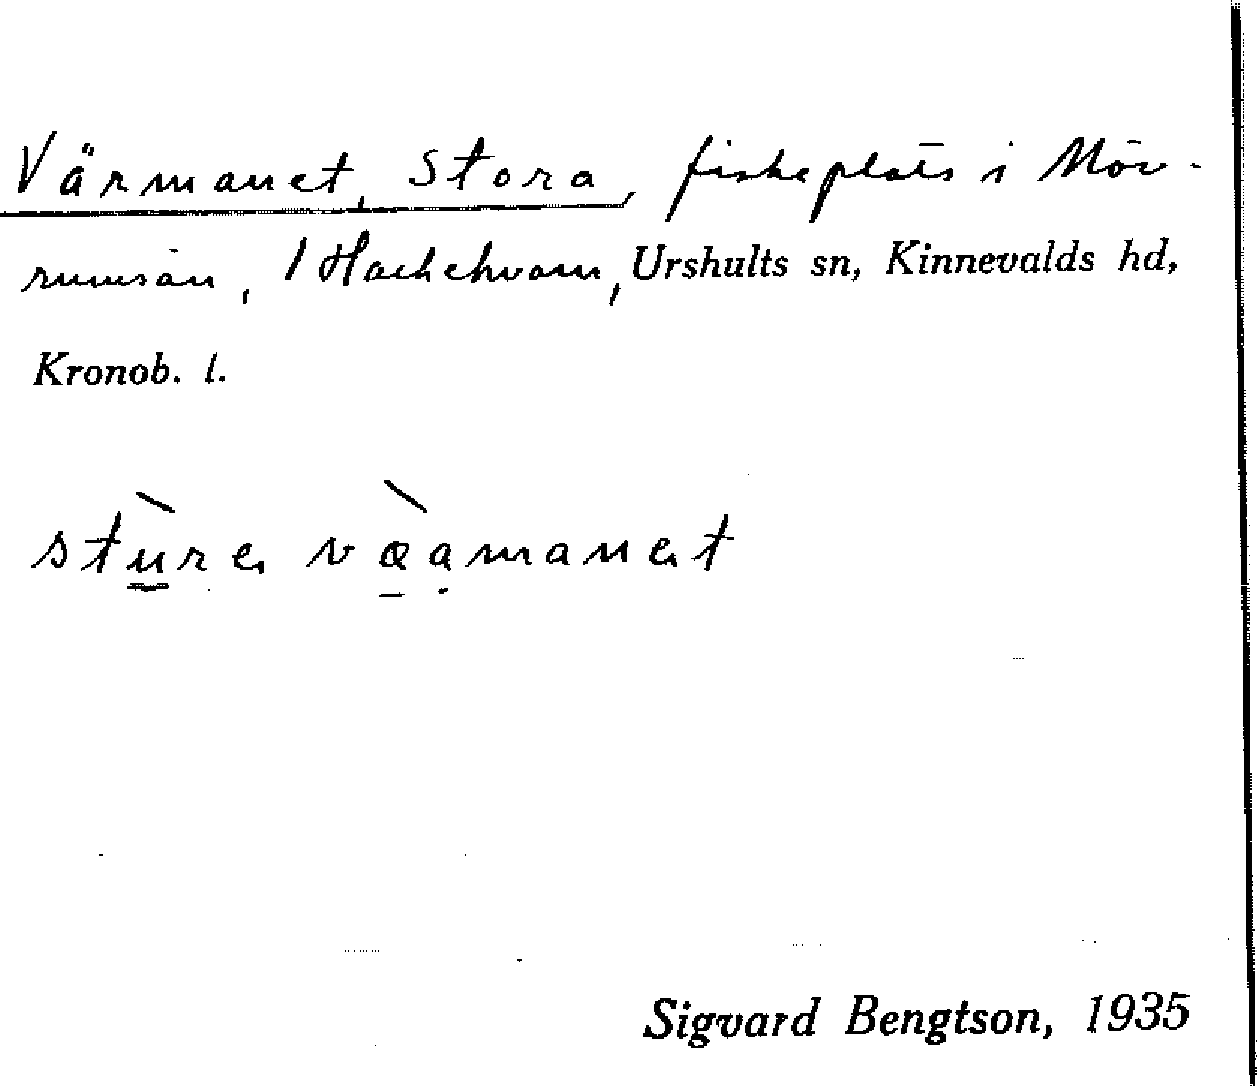 Värmanet, Stora, fiskeplats i Mör-
rumsån, 1 Hackekvarn, Urshults sn, Kinnevalds hd,
Kronob. l.
stùre væ̀ạmanet
Sigvard Bengtson, 1935